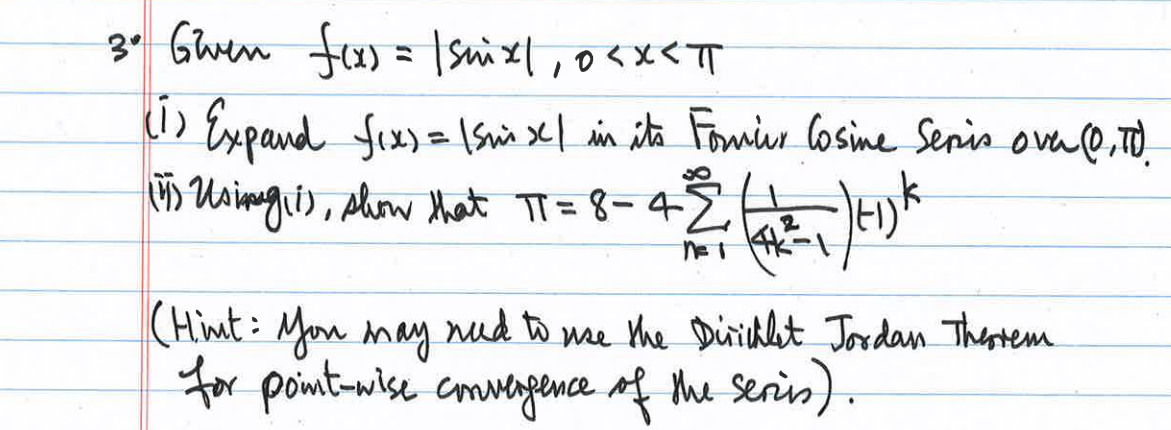 3. Given f(x) = |sin x|, 0 < x < π
(i) Expand f(x) = |sin x| in its Fourier Cosine Series over (0, π).
(ii) Using (i), show that π = 8 - 4 ∞ Σ n=1 (1/(4k²-1)) (-1)^k
(Hint: You may need to use the Dirichlet Jordan Theorem
for point-wise convergence of the series).